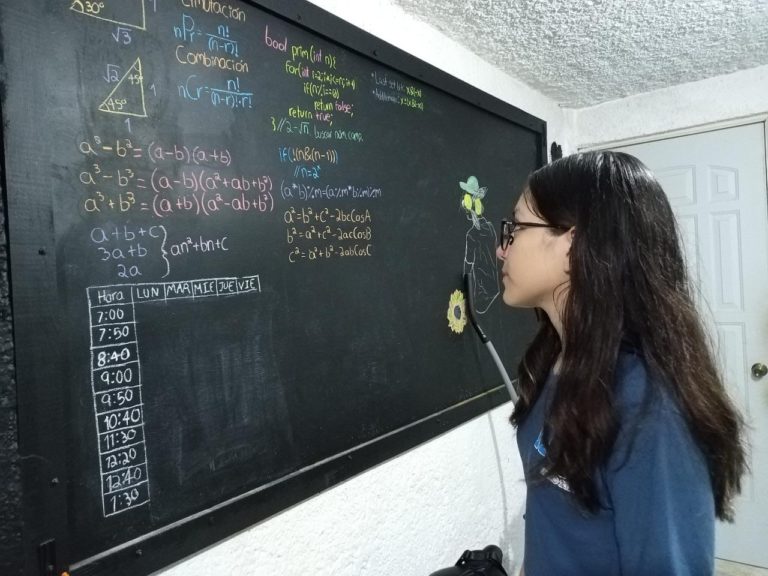 30°
1
√3
√2
45°
1
45°
1
nPr = n!/(n-r)!
Combinación
nCr = n!/(n-r)!·r!
a³-b²=(a-b)(a+b)
a³-b³=(a-b)(a²+ab+b²)
a³+b³=(a+b)(a²-ab+b²)
a+b+c
3a+b
2a
} an²+bn+c
bool prim(int n){
return false;
return true;
if(!(n&(n-1)))
//n=2ˣ
a²=b²+c²-2bcCosA
b²=a²+c²-2acCosB
c²=a²+b²-2abCosC
Hora LUN MAR MIE JUE VIE
7:00
7:50
8:40
9:00
9:50
10:40
11:30
12:20
12:40
1:30